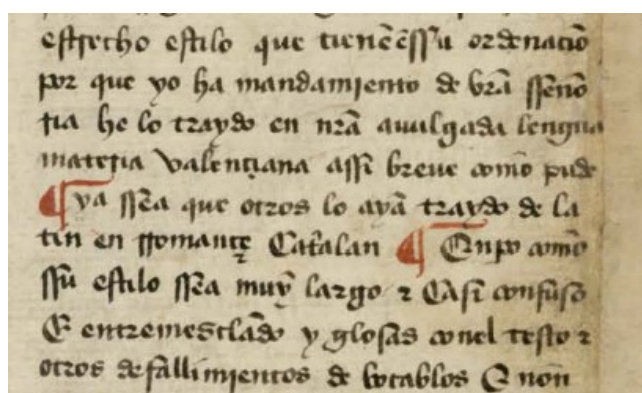 estrecho estilo que tienē ē ssu ordenaciō
por que yo ha mandamiento de vr̄a sseno
ria he lo traydo en nr̄a avulgada lengua
materia valençiana assi breve comō pude
¶ ya ssēa que otros lo ayā traydo de la
tin en rromançe Catalan ¶ Enpo comō
ssu estilo ssēa muȳ largo ⁊ Casi confuso
E entremesclādo y glosas conel testo ⁊
otros defallimientos de vocablos E non̄